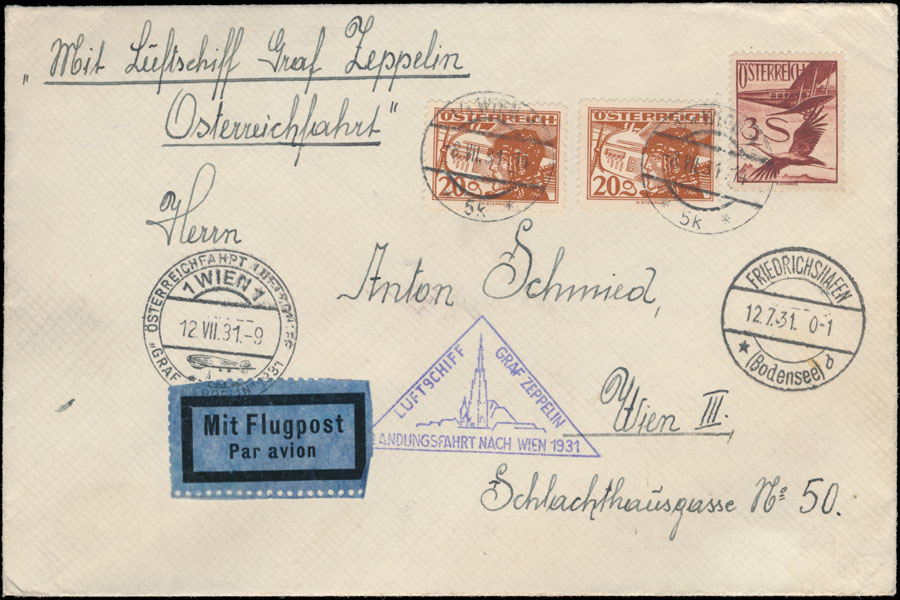 "Mit Luftschiff Graf Zeppelin
Österreichfahrt"
ÖSTERREICH
20g
ÖSTERREICH
20g
ÖSTERREICH
3S
1 WIEN
VII.31
5k *
5k *
Herrn
Anton Schmied,
Wien III.
Schlachthausgasse No 50.
ÖSTERREICHFAHRT LUFTSCHIFF
1 WIEN 1
12.VII.31.-9
"GRAF ZEPPELIN" 1931
FRIEDRICHSHAFEN
12.7.31. 0-1
* (Bodensee) d
LUFTSCHIFF GRAF ZEPPELIN
LANDUNGSFAHRT NACH WIEN 1931
Mit Flugpost
Par avion